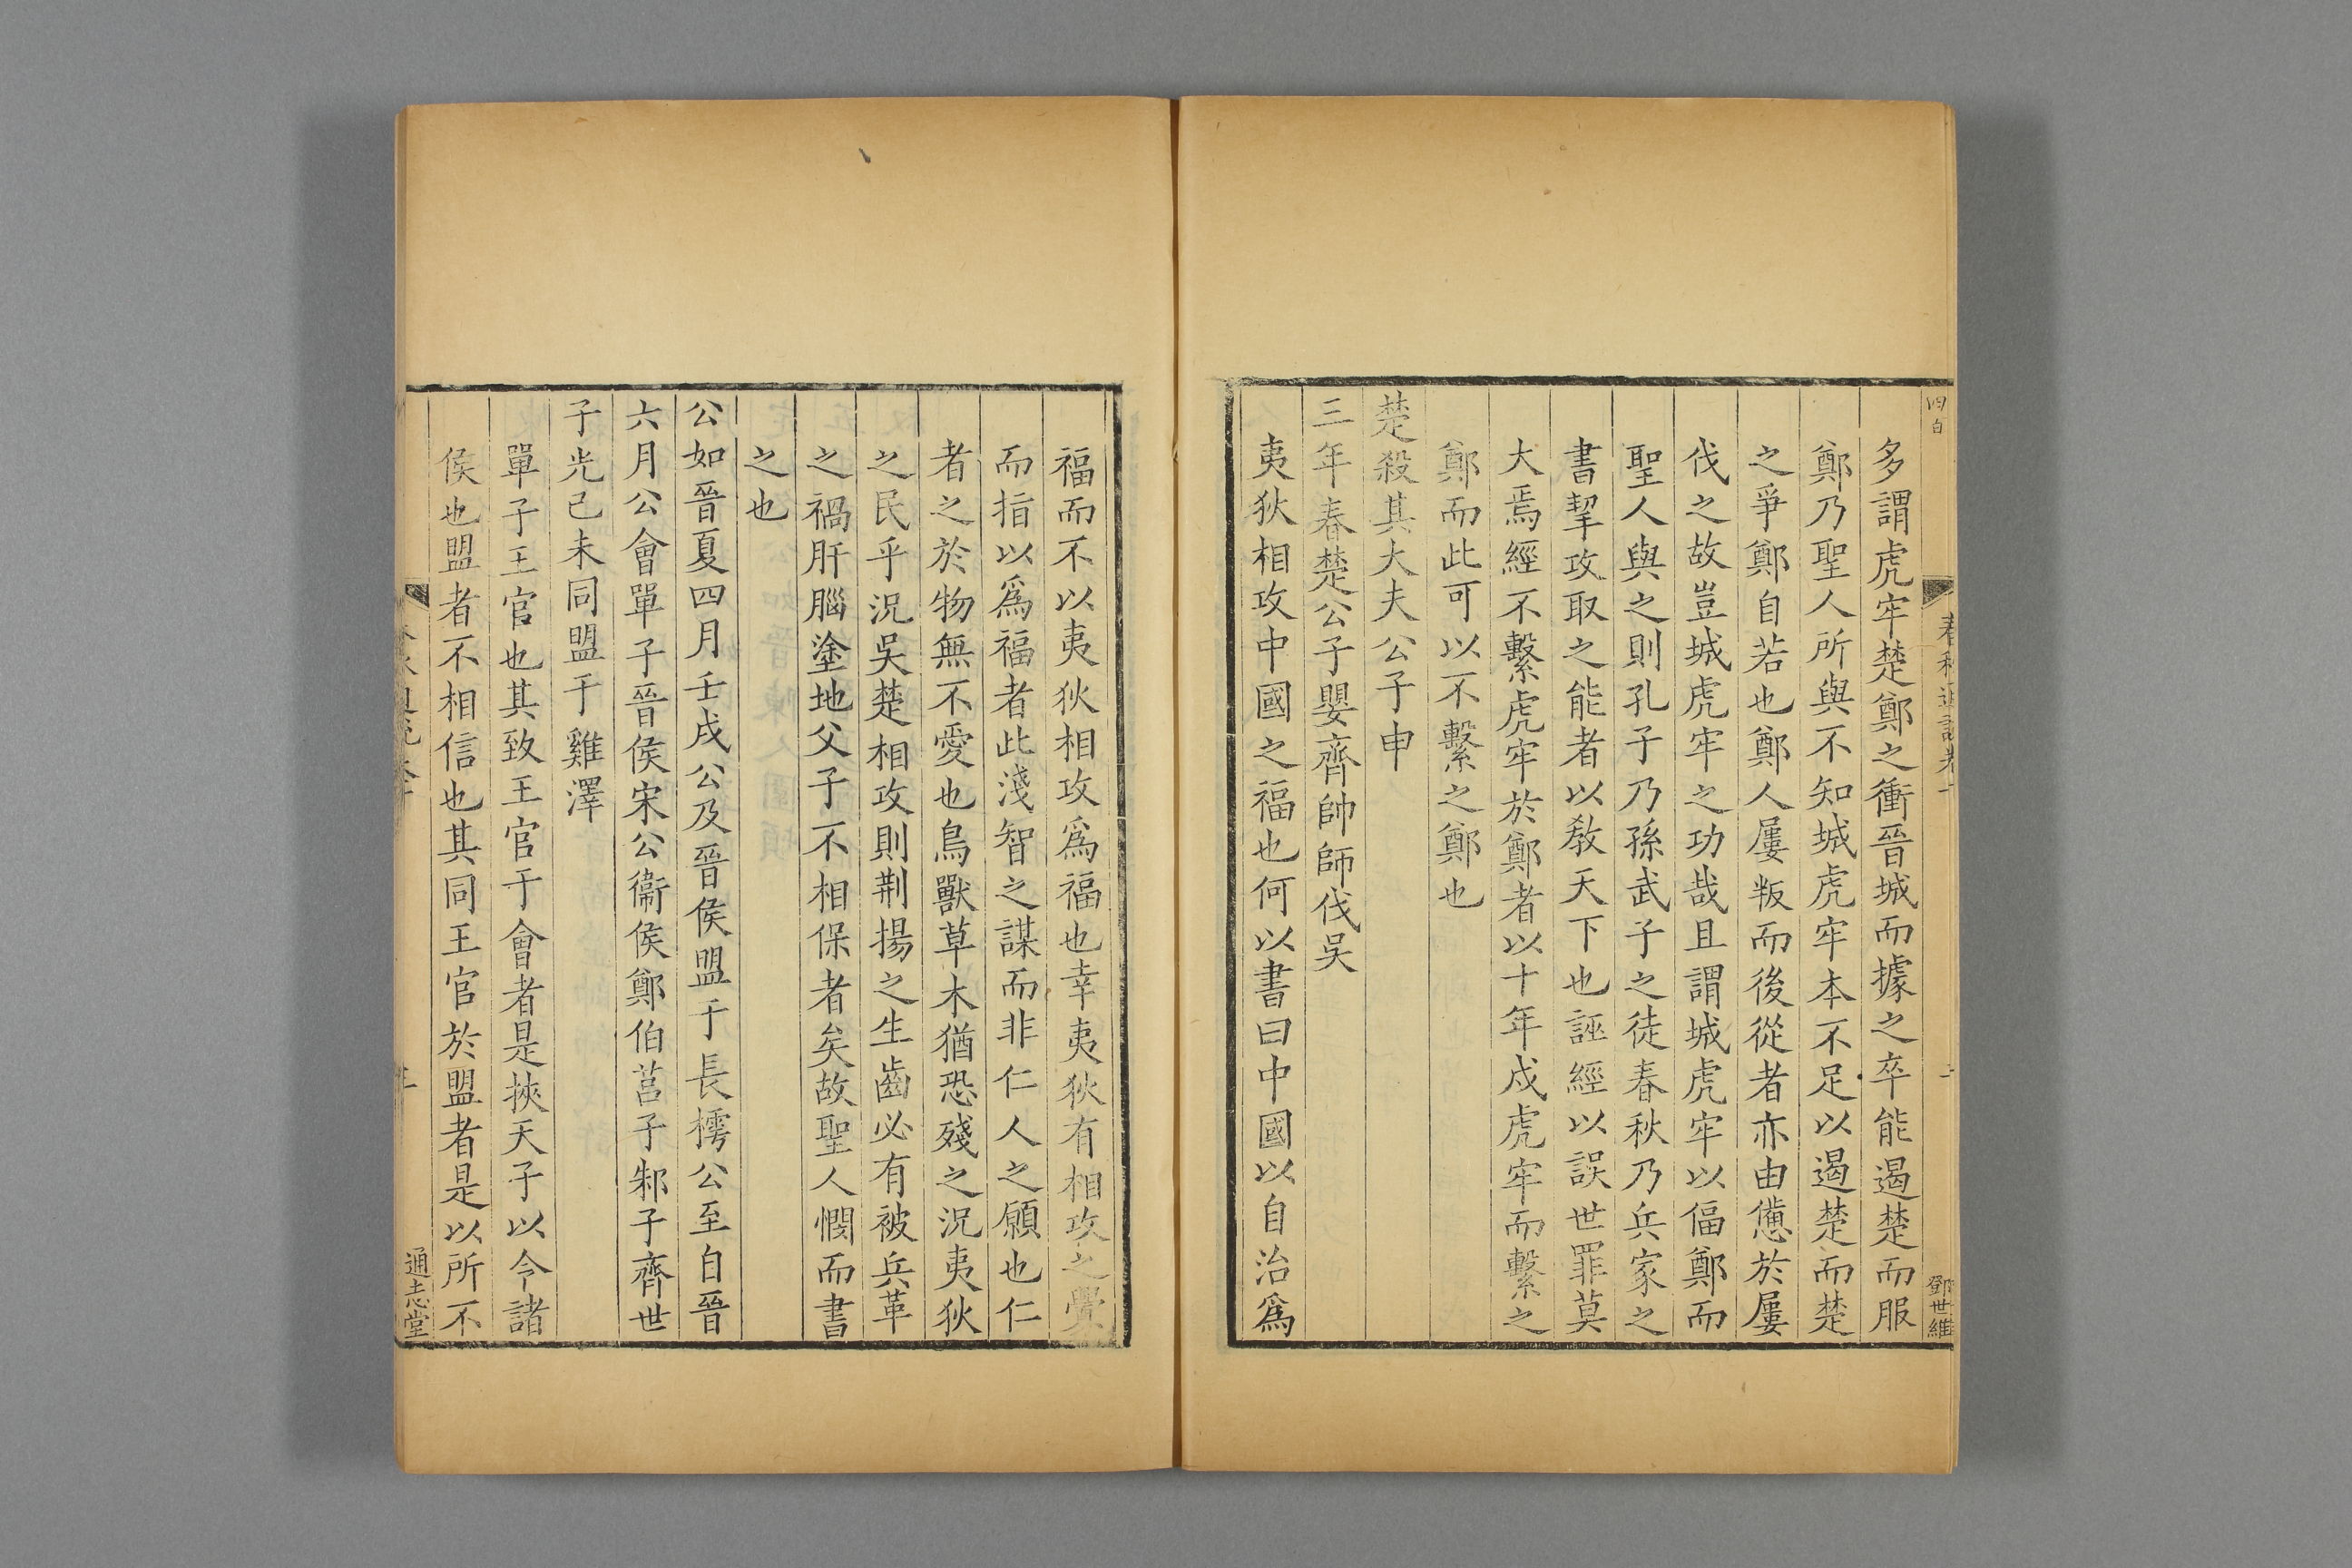 四百
鄧世維
多謂虎牢楚鄭之衝晉城而據之卒能遏楚而服
鄭乃聖人所與不知城虎牢本不足以遏楚而楚
之爭鄭自若也鄭人屢叛而後從者亦由憊於屢
伐之故豈城虎牢之功哉且謂城虎牢以偪鄭而
聖人與之則孔子乃孫武子之徒春秋乃兵家之
書挈攻取之能者以教天下也誣經以誤世罪莫
大焉經不繫虎牢於鄭者以十年戍虎牢而繫之
鄭而此可以不繫之鄭也
楚殺其大夫公子申
三年春楚公子嬰齊帥師伐吳
夷狄相攻中國之福也何以書曰中國以自治爲
福而不以夷狄相攻爲福也幸夷狄有相攻之釁
而指以爲福者此淺智之謀而非仁人之願也仁
者之於物無不愛也鳥獸草木猶恐殘之況夷狄
之民乎況吳楚相攻則荆揚之生齒必有被兵革
之禍肝腦塗地父子不相保者矣故聖人憫而書
之也
公如晉夏四月壬戌公及晉侯盟于長樗公至自晉
六月公會單子晉侯宋公衞侯鄭伯莒子邾子齊世
子光己未同盟于雞澤
單子王官也其致王官于會者是挾天子以令諸
侯也盟者不相信也其同王官於盟者是以所不
通志堂